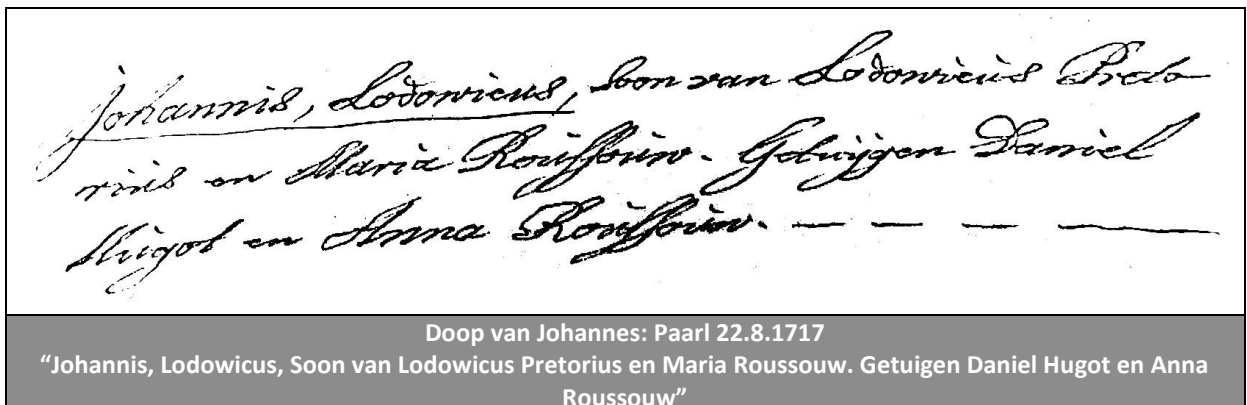 Johannis, Lodowicus, Soon van Lodowicus Preto
rius en Maria Roussouw. Getuijgen Daniel
Hugot en Anna Roussouw. — — — —
Doop van Johannes: Paarl 22.8.1717
“Johannis, Lodowicus, Soon van Lodowicus Pretorius en Maria Roussouw. Getuigen Daniel Hugot en Anna
Roussouw”